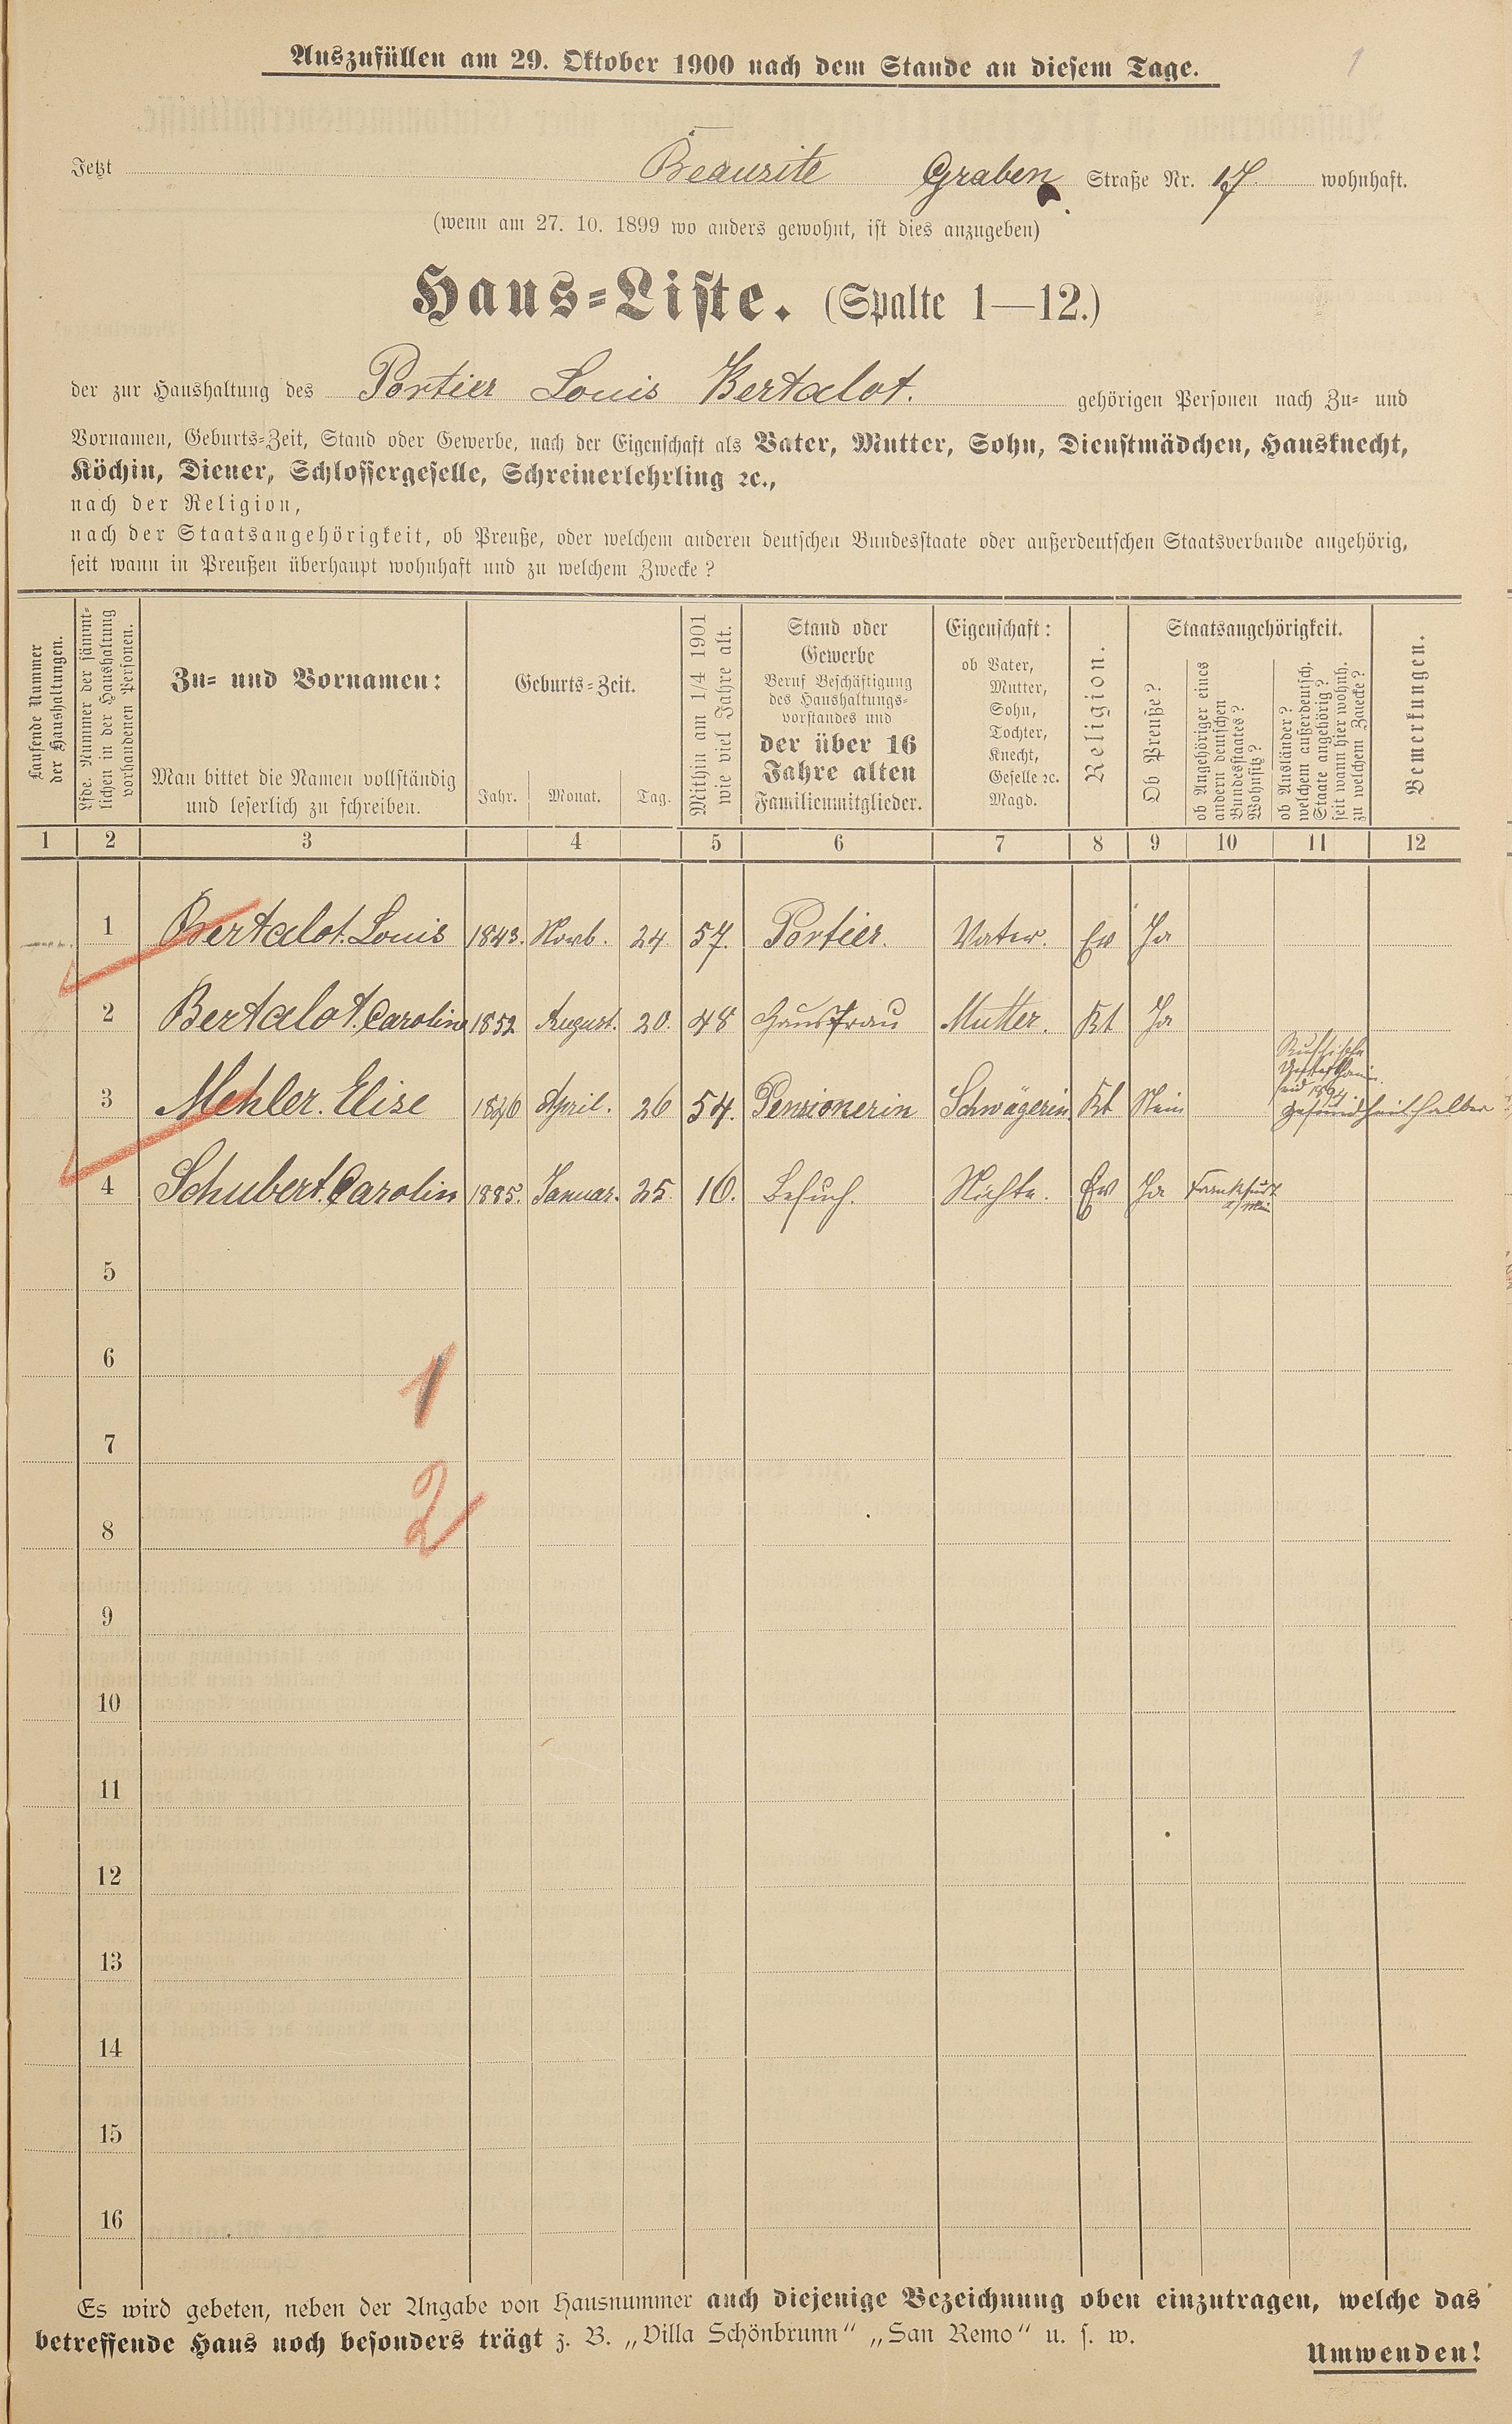 1
Auszufüllen am 29. Oktober 1900 nach dem Stande an diesem Tage.
Jetzt Beausite Graben Straße Nr. 17. wohnhaft.
(wenn am 27. 10. 1899 wo anders gewohnt, ist dies anzugeben)
Haus-Liste. (Spalte 1—12.)
der zur Haushaltung des Portier Louis Bertalot. gehörigen Personen nach Zu- und
Vornamen, Geburts-Zeit, Stand oder Gewerbe, nach der Eigenschaft als Vater, Mutter, Sohn, Dienstmädchen, Hausknecht,
Köchin, Diener, Schlossergeselle, Schreinerlehrling ꝛc.,
nach der Religion,
nach der Staatsangehörigkeit, ob Preuße, oder welchem anderen deutschen Bundesstaate oder außerdeutschen Staatsverbande angehörig,
seit wann in Preußen überhaupt wohnhaft und zu welchem Zwecke?
Laufende Nummer
der Haushaltungen.
Lfde. Nummer der sämmt-
lichen in der Haushaltung
vorhandenen Personen.
Zu- und Vornamen:
Man bittet die Namen vollständig
und leserlich zu schreiben.
Geburts-Zeit.
Jahr. Monat. Tag.
Mithin am 1/4 1901
wie viel Jahre alt.
Stand oder
Gewerbe
Beruf Beschäftigung
des Haushaltungs-
vorstandes und
der über 16
Jahre alten
Familienmitglieder.
Eigenschaft:
ob Vater,
Mutter,
Sohn,
Tochter,
Knecht,
Geselle ꝛc.
Magd.
Religion.
Staatsangehörigkeit.
Ob Preuße?
ob Angehöriger eines
andern deutschen
Bundesstaates?
Wohnsitz?
ob Ausländer?
welchem außerdeutsch.
Staate angehörig?
seit wann hier wohnh.
zu welchem Zwecke?
Bemerkungen.
1 2 3 4 5 6 7 8 9 10 11 12
1 Bertalot. Louis 1843. Novb. 24 57. Portier. Vater. Ev Ja
2 Bertalot. Carolin 1852 August. 20. 48 Hausfrau Mutter. Kt Ja
Russische
seid 1894
3 Mehler. Elise 1846 April. 26 54. Pensionerin Schwägerin. Kt Nein gesundheithalber
4 Schubert. Carolin 1885. Januar. 25. 16. Besuch. Nichte. Ev Ja Frankfurt
a/Main
5
6
1
7
2
8
9
10
11
12
13
14
15
16
Es wird gebeten, neben der Angabe von Hausnummer auch diejenige Bezeichnung oben einzutragen, welche das
betreffende Haus noch besonders trägt z. B. „Villa Schönbrunn“ „San Remo“ u. s. w.
Umwenden!